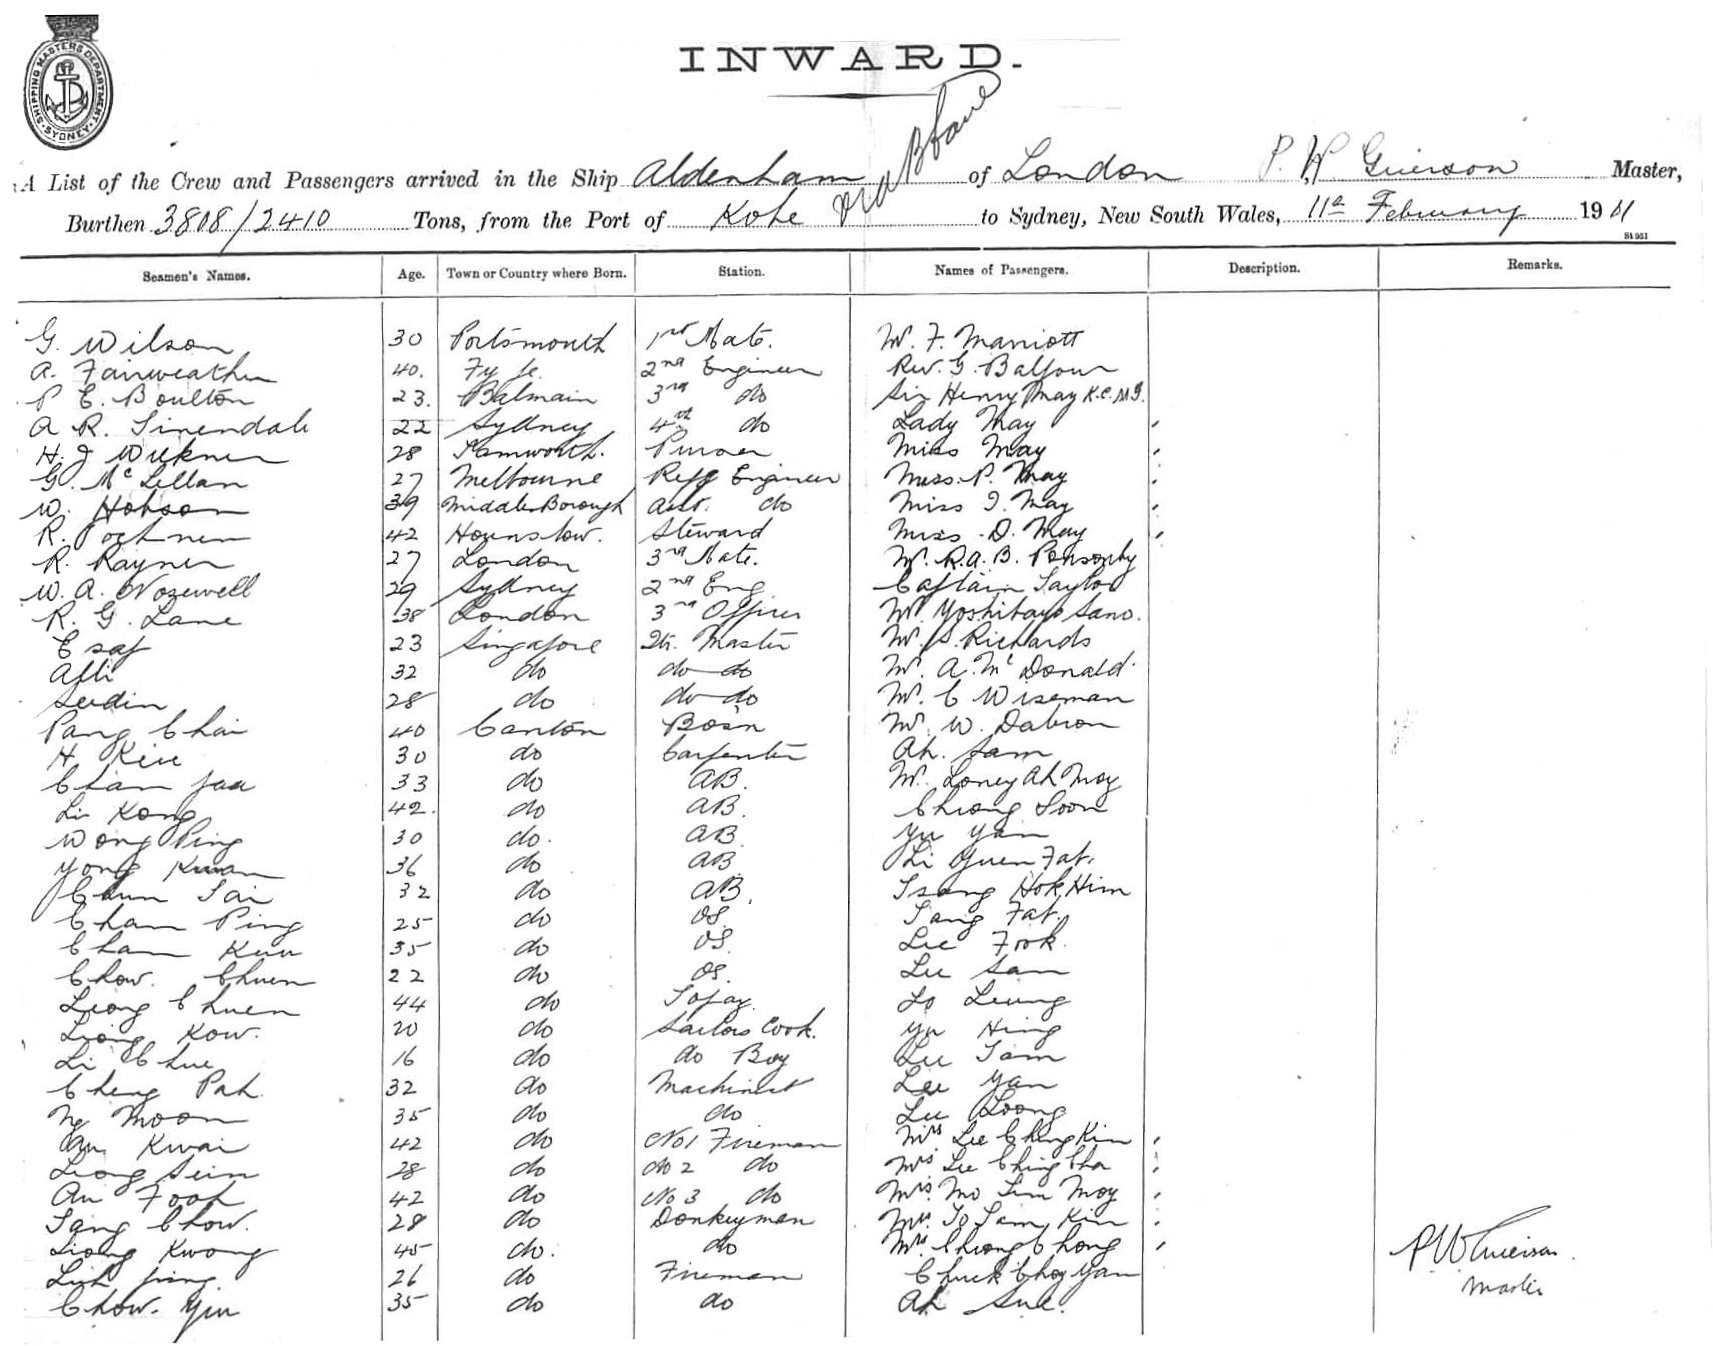 SHIPPING MASTERS DEPARTMENT. SYDNEY
INWARD.
A List of the Crew and Passengers arrived in the Ship Aldenham of London P. W. Grierson Master,
via Bbane
Burthen 3808/2410 Tons, from the Port of Kobe to Sydney, New South Wales, 11th February 1911
Seamen's Names. Age. Town or Country where Born. Station. Names of Passengers. Description. Remarks.
G. Wilson 30 Portsmouth 1st Mate. W. F. Marriott
A. Fairweather 40. Fyfe. 2nd Engineer Rev. G. Balfour
P E. Boulton 23. Balmain 3rd do Sir Henry May K.C.M.G.
A R. Sinendale 22 Sydney 4th do Lady May
H. J 28 Tamworth. Purser Miss May
G. McLellan 27 Melbourne Refg Engineer Miss P. May
W. Hobson 39 MiddlesBorough Asst. do Miss I. May
R. 42 Hounslow. Steward Miss D. May
R. Rayner 27 London 3rd Mate. Mr. R. A. B. Ponsonby
W. A. Nozewell 29 Sydney 2nd Eng Captain Taylor
R. G. Lane 38 London 3rd Officer Mr Sano.
Esaf 23 Singapore Qr. Master Mr. S. Richards
Alli 32 do do do Mr. A. McDonald
Serdin 28 do do do Mr. C Wiseman
Pang Chai 40 Canton Bosn Mr. W. Dabron
H 30 do Carpenter Ah. Sam
Cham 33 do AB. Mr. Loney Ah Moy
Li Kong 42. do AB. Cheong Soon
Wong Ping 30 do. AB. Yu Yan
Yong Kwan 36 do AB Li Yuen Fat.
Chun Tai 32 do AB. Tsang Hok Him
Cham Ping 25 do OS. Tang Fat.
Cham 35 do OS. Lee Fook.
Chow. Chuen 22 do OS. Lee Sam
Leong Chuen 44 do Topaz. Lo Leung
Leong Kow. 20 do Sailors Cook. Yu Hing
Li Chue 16 do do Boy Lee Tam
Cheng Pak 32 do Machinist Lee Yan
Ng Moon 35 do do Lee Loong
Au Kwai 42 do No 1 Fireman Mrs Lee Ching Kim
Leong Sun 28 do No 2 do Mrs Lee Ching Cha
Au Fook 42 do No 3 do Mrs. Mo Lin Moy
Tang Chow. 28 do Donkeyman Mrs. To Sam Kin
Leong Kwong 45 do. do Mrs. Cheong Chong
26 do Fireman Chuck Choy Yan
Chow. Yiu 35 do do Ah Sue.
P W Grierson
Master